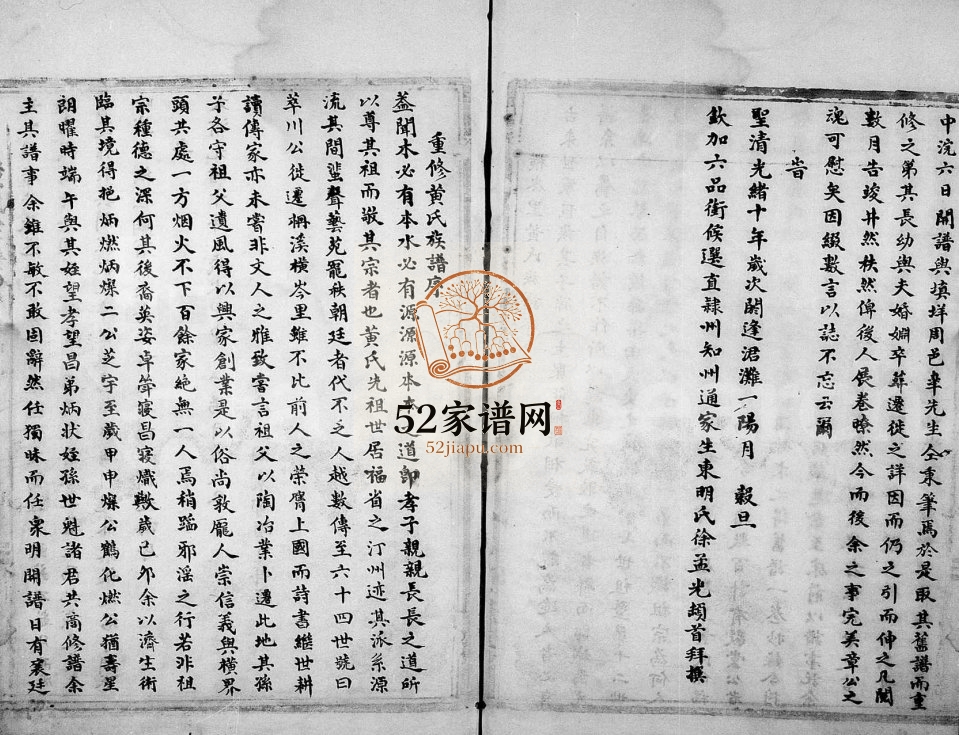 中浣六日開譜與填垟周邑辜先生仝秉筆焉於是取其舊譜而重
修之第其長幼與夫婚姻卒葬遷徙之詳因而仍之引而伸之凡閱
數月告竣井然秩然俾後人展卷暸然今而後余之事完美章公之
魂可慰矣因綴數言以誌不忘云爾
旹
聖清光緒十年歲次閼逢涒灘一陽月 穀旦
欽加六品銜候選直隸州知州通家生東明氏徐孟光頓首拜撰
重修黃氏族譜序
蓋聞木必有本水必有源源源本本之道即孝子親親長長之道所
以尊其祖而敬其宗者也黃氏先祖世居福省之汀州迹其派系源
流其間蜚聲藝苑寵秩朝廷者代不乏人越數傳至六十四世號曰
萃川公徙遷楜溪橫岑里雖不比前人之榮膺上國而詩書繼世耕
讀傳家亦未嘗非文人之雅致嘗言祖父以陶冶業卜遷此地其孫
子各守祖父遺風得以興家創業是以俗尚敦龐人崇信義與橫界
頭共處一方烟火不下百餘家絕無一人焉稍蹈邪淫之行若非祖
宗種德之深何其後裔英姿卓犖寢昌寢熾歟歲己夘余以濟生術
臨其境得挹炳燃炳燦二公芝宇至歲甲申燦公鶴化燃公猶壽星
朗曜時端午與其姪望孝望昌弟炳狀姪孫世魁諸君共商修譜余
主其譜事余雖不敏不敢固辭然任獨昧而任衆明開譜日有襄廷
52家谱网
52jiapu.com